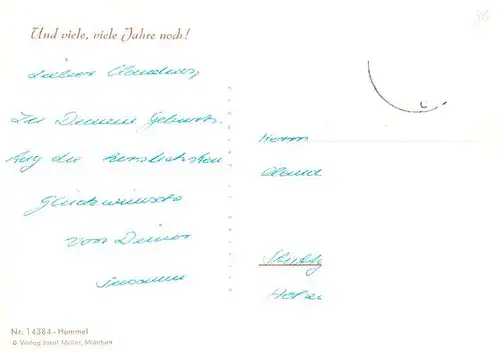 36
Und viele, viele Jahre noch!
Lieber
Zu Deinem Geburts-
tag die herzlichsten
Glückwünsche
von Deiner
Susanne
Herrn
Nr. 14384 - Hummel
© Verlag Josef Müller, München